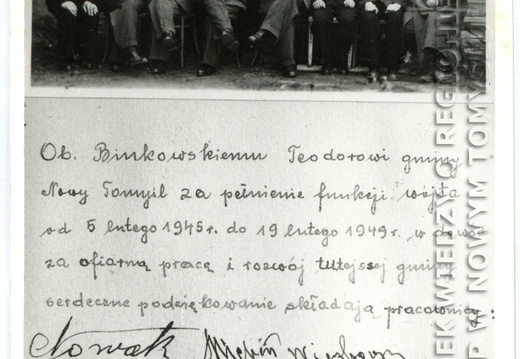 Ob. Binkowskiemu Teodorowi gminy
Nowy Tomyśl za pełnienie funkcji wójta
od 5 lutego 1945 r. do 19 lutego 1949 r. w dowód
za ofiarną pracę i rozwój tutejszej gminy
serdeczne podziękowanie składają pracownicy:
Nowak
EKWIERZY O REGIO
P W NOWYM TOMY